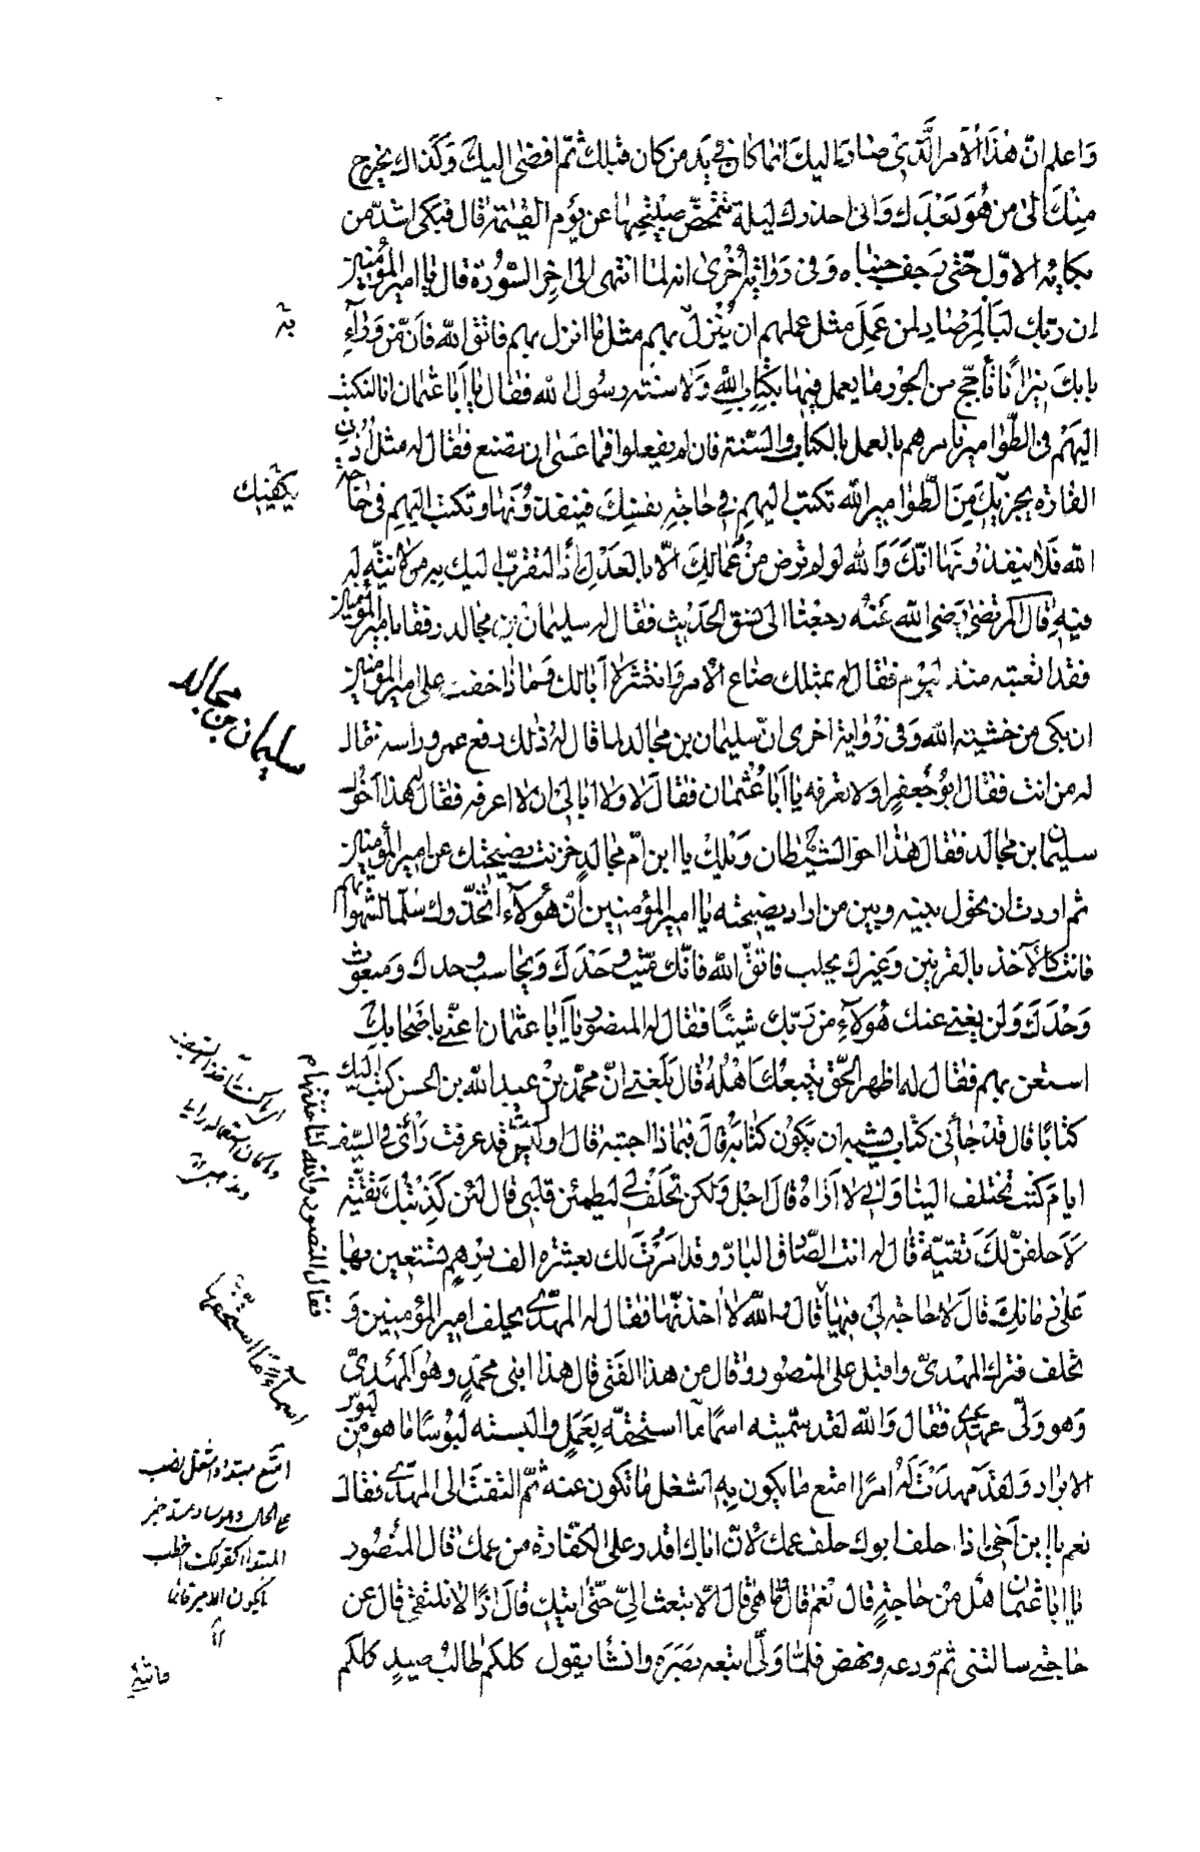 واعلم ان هذا الأمر الذي صار اليك انما كان في يد من كان قبلك ثم افضى اليك وكذلك يخرج
منك الى من هو بعدك واني احذرك ليلة تمخض صبيحتها عن يوم القيمة قال فبكى اشد من
بكائه الاول حتى رجف جنباه وفي رواية اخرى انه لما انتهى الى اخر السورة قال يا امير المؤمنين
ان ربك لبالمرصاد لمن عمل مثل عملهم ان ينزل بهم مثل ما انزل بهم فاتق الله فان من وراء
بابك نيرانا تأجج من الجور ما يعمل فيها بكتاب الله ولا سنة رسول الله فقال يا أبا عثمان انا لنكتب
اليهم في الطوامير نامرهم بالعمل بالكتاب والسنة فان لم يفعلوا فما عسى ان نصنع فقال له مثل اذن
الفارة يجزيك من الطوامير الله تكتب اليهم في حاجة نفسك فينفذونها وتكتب اليهم في حاجة
الله فلا ينفذونها انك والله لو لم ترض من عمالك الا بالعدل اذا لتقرب اليك به من لا نية له
فيه قال المرتضى رضي الله عنه رجعنا الى نسق الحديث فقال له سليمان بن مجالد رفقا بامير المؤمنين
فقد اتعبته منذ اليوم فقال له بمثلك ضاع الأمر وانتشر لا أبا لك وماذا خفت على امير المؤمنين
ان بكى من خشية الله وفي رواية اخرى ان سليمان بن مجالد لما قال له ذلك رفع عمرو راسه فقال
له من انت فقال ابو جعفر اولا تعرفه يا أبا عثمان فقال لا ولا ابالي ان لا اعرفه فقال هذا اخوك
سليمان بن مجالد فقال هذا اخو الشيطان ويلك يا ابن ام مجالد خزنت نصيحتك عن امير المؤمنين
ثم اردت ان تحول بينه وبين من اراد نصيحته يا امير المؤمنين ان هؤلاء اتخذوك سلما لشهواتهم
فانت كالآخذ بالقرنين وغيرك يحلب فاتق الله فانك ميت وحدك ومحاسب وحدك ومبعوث
وحدك ولن يغني عنك هؤلاء من ربك شيئا فقال له المنصور يا أبا عثمان اعني باصحابك
استعن بهم فقال له اظهر الحق يتبعك اهله قال بلغني ان محمد بن عبد الله بن الحسن كتب اليك
كتابا قال قد جاءني كتاب يشبه ان يكون كتابه قال فبماذا اجبته قال اوليس قد عرفت رأيي في السيف
ايام كنت تختلف الينا واني لا اراه قال اجل ولكن تحلف لي ليطمئن قلبي قال لئن كذبتك تقية
لاحلفن لك تقية قال له انت الصادق البار وقد امرت لك بعشرة الف درهم تستعين بها
على زمانك قال لا حاجة لي فيها قال والله لاأخذنها فقال له المهدي يحلف امير المؤمنين و
تحلف فترك المهدي واقبل على المنصور وقال من هذا الفتى قال هذا ابني محمد وهو المهدي
وهو ولي عهدي فقال والله لقد سميته اسما ما استحقه بعمل والبسته لبوسا ما هو من لبوس
الابرار ولقد مهدت له امرا امتع ما يكون به اشغل ما تكون عنه ثم التفت الى المهدي فقال
نعم يا ابن اخي اذا حلف ابوك حلف عمك لان اباك اقدر على الكفارة من عمك قال المنصور
يا ابا عثمان هل من حاجة قال نعم قال ما هي قال لا تبعث الي حتى اتيك قال اذا لا نلتقي قال عن
حاجتي سالتني ثم ودعه ونهض فلما ولى اتبعه بصره وانشا يقول كلكم طالب صيد كلكم
يكفيك
سليمان بن مجالد
فقال المنصور والله لتاخذنها م
امتع مبتدا واشغل نصب
على الحال وهو ساد مسد خبر
المبتدا كقولك اخطب
ما يكون الامير قائما